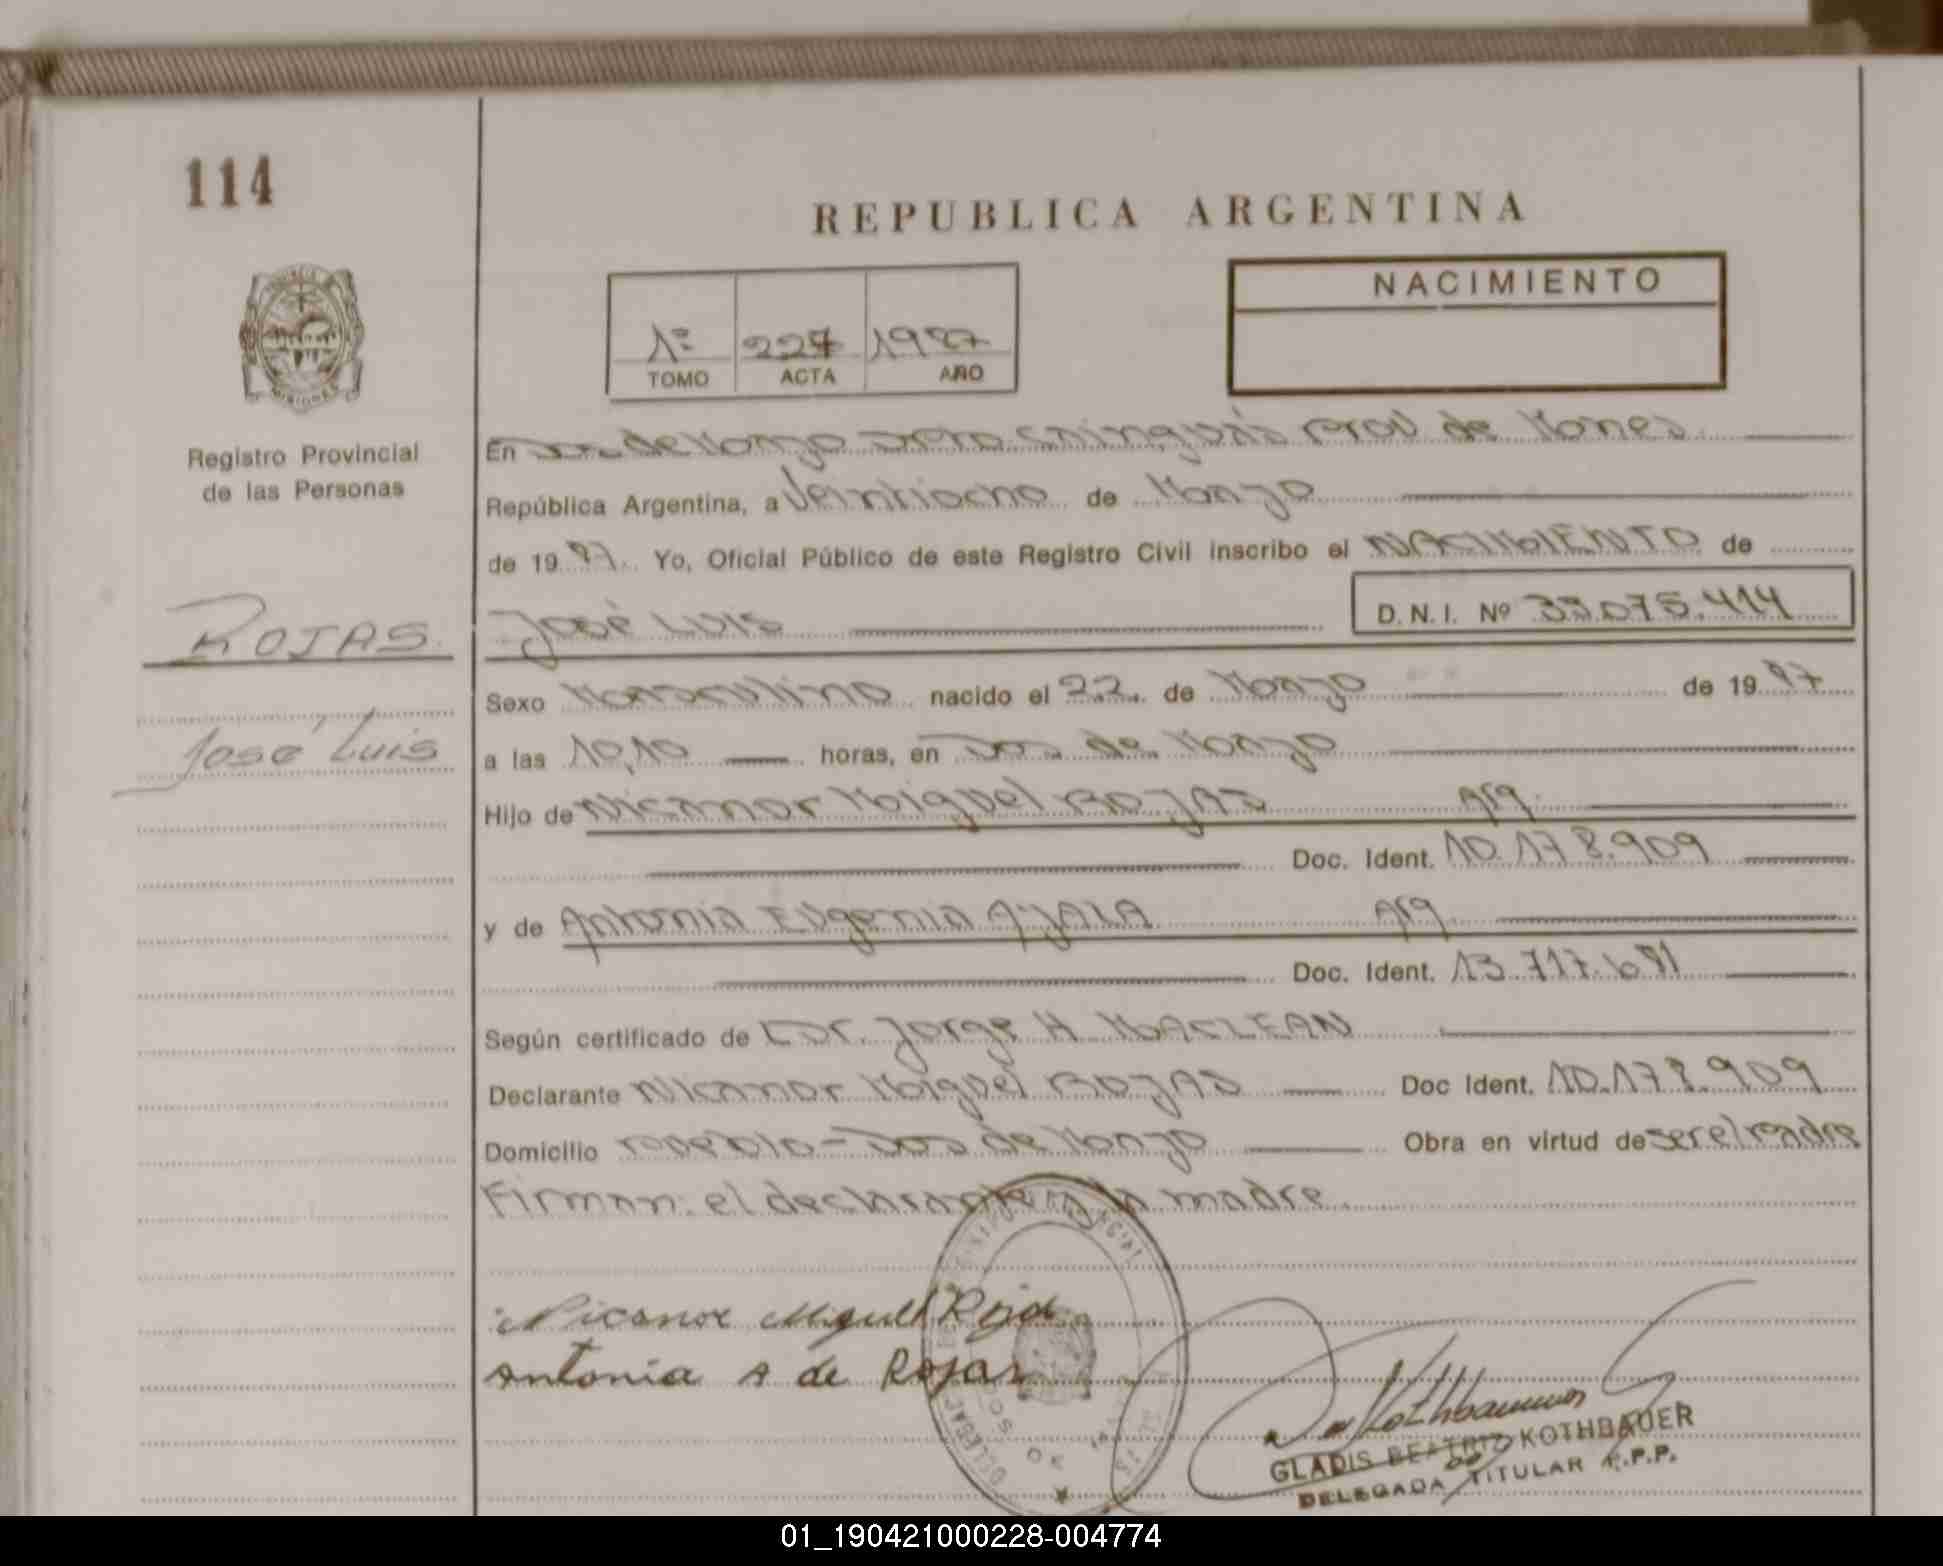 114
REPUBLICA ARGENTINA
NACIMIENTO
1º 227 1987
TOMO ACTA AÑO
Registro Provincial
de las Personas
En Dos de Mayo Dpto Cainguás Prov de Mones
República Argentina, a Veintiocho de Mayo
de 1987. Yo, Oficial Público de este Registro Civil inscribo el NACIMIENTO de
ROJAS
José LUIS D.N.I. Nº 33.075.414
Sexo Masculino nacido el 22 de Mayo de 1987
José Luis
a las 10,10 horas, en Dos de Mayo
Hijo de Nicanor Miguel ROJAS Arg.
Doc. Ident. 10.178.909
y de Antonia Eugenia AYALA Arg.
Doc. Ident. 13.717.681
Según certificado de Dr. Jorge H. MACLEAN
Declarante Nicanor Miguel ROJAS Doc Ident. 10.178.909
Domicilio Pueblo - Dos de Mayo Obra en virtud de ser el padre
Firman: el declarante y la madre.
Nicanor Miguel Rojas
Antonia A de Rojas
Kothbauer
GLADIS BEATRIZ KOTHBAUER
DELEGADA TITULAR R.P.P.
01_190421000228-004774